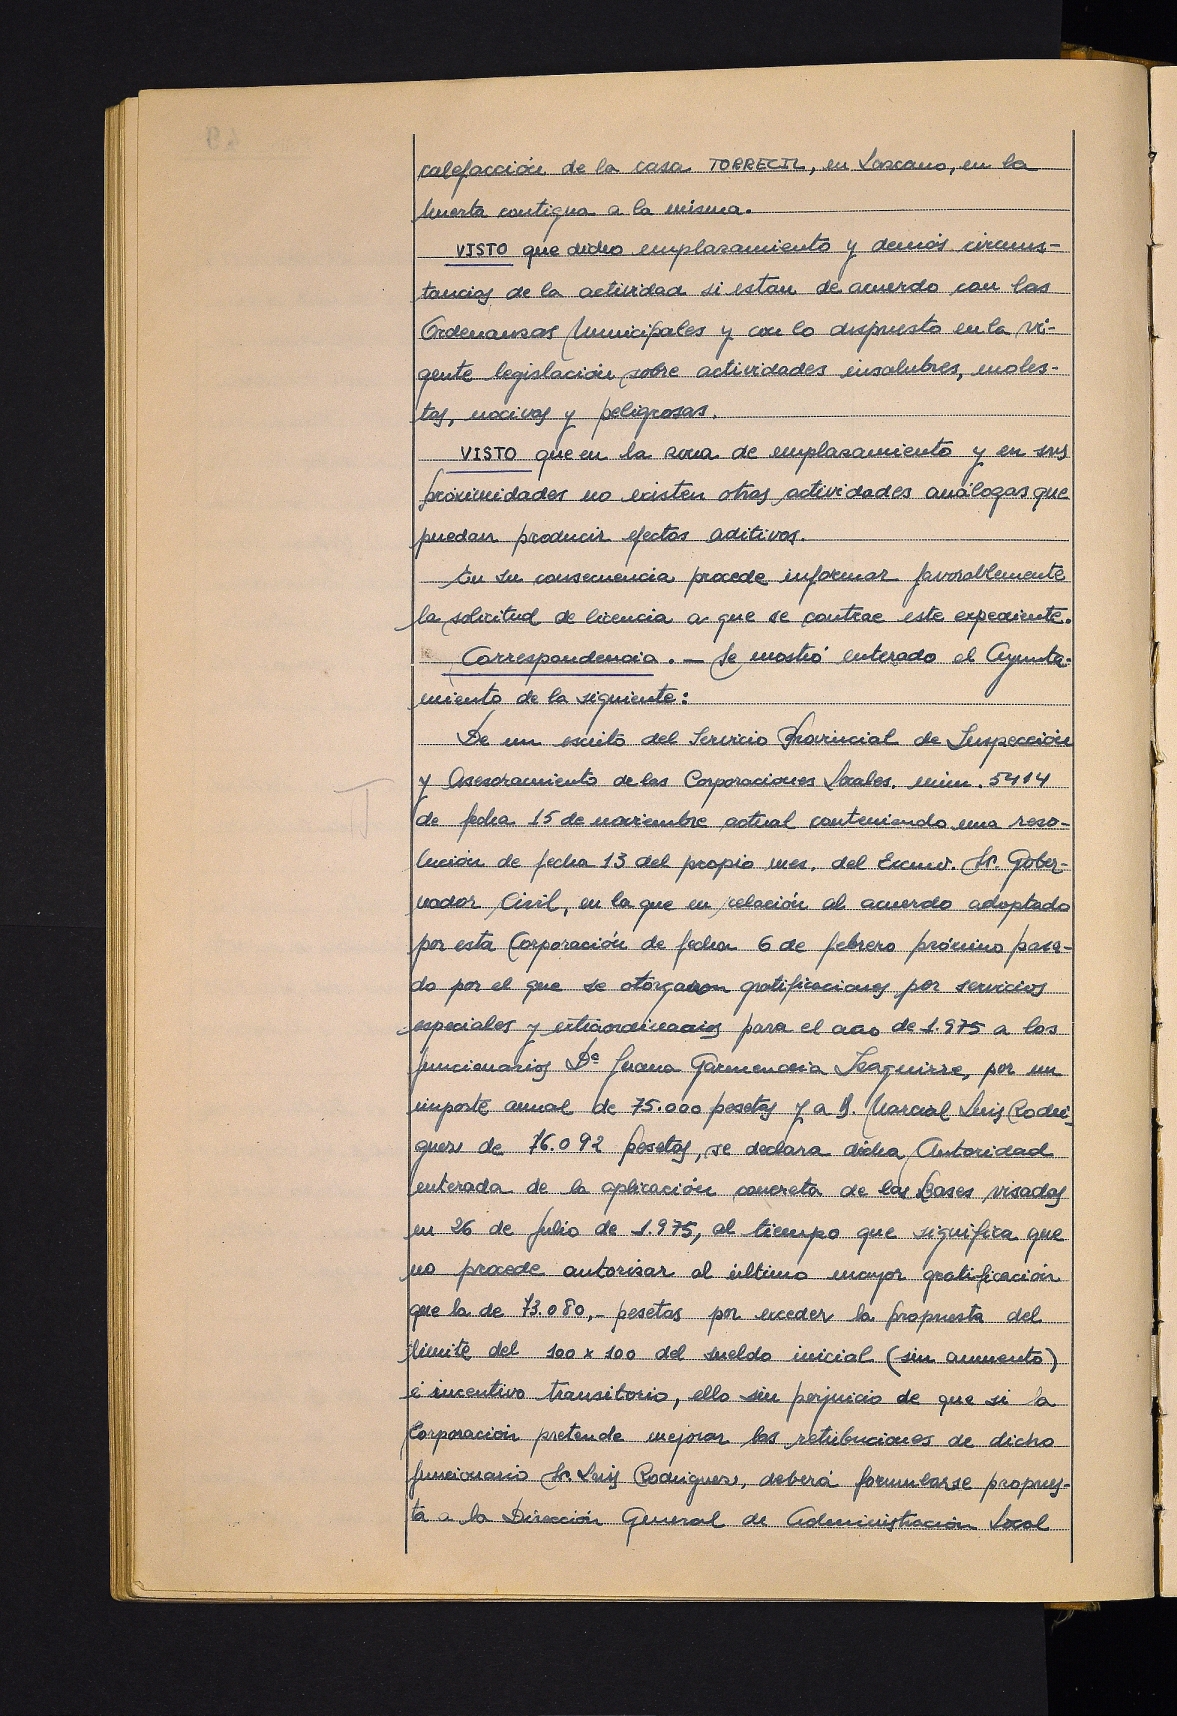 calefacción de la casa TORRECIL, en Lazcano, en la
huerta contigua a la misma.
VISTO que dicho emplazamiento y demás circuns-
tancias de la actividad si estan de acuerdo con las
Ordenanzas Municipales y con lo dispuesto en la vi-
gente legislación sobre actividades insalubres, moles-
tas, nocivas y peligrosas.
VISTO que en la zona de emplazamiento y en sus
proximidades no existen otras actividades análogas que
puedan producir efectos aditivos.
En su consecuencia procede informar favorablemente
la solicitud de licencia a que se contrae este expediente.
Correspondencia. — Se mostró enterado el Ayunta-
miento de la siguiente:
De un escrito del Servicio Provincial de Inspección
y Asesoramiento de las Corporaciones Locales, núm. 5414
de fecha 15 de noviembre actual conteniendo una reso-
lución de fecha 13 del propio mes, del Excmo. Sr. Gober-
nador Civil, en la que en relación al acuerdo adoptado
por esta Corporación de fecha 6 de febrero próximo pasa-
do por el que se otorgaron gratificaciones por servicios
especiales y extraordinarios para el año de 1.975 a los
funcionarios Dª Juana Garmendia Izaguirre, por un
importe anual de 75.000 pesetas y a D. Marcial Luis Rodrí-
guez de 76.092 pesetas, se declara dicha Autoridad
enterada de la aplicación concreta de las Bases visadas
en 26 de Julio de 1.975, al tiempo que significa que
no procede autorizar al último mayor gratificación
que la de 73.080,- pesetas por exceder la propuesta del
límite del 100 x 100 del sueldo inicial (sin aumento)
é incentivo transitorio, ello sin perjuicio de que si la
Corporación pretende mejorar las retribuciones de dicho
funcionario Sr. Luis Rodriguez, deberá formularse propues-
ta a la Dirección General de Administración Local